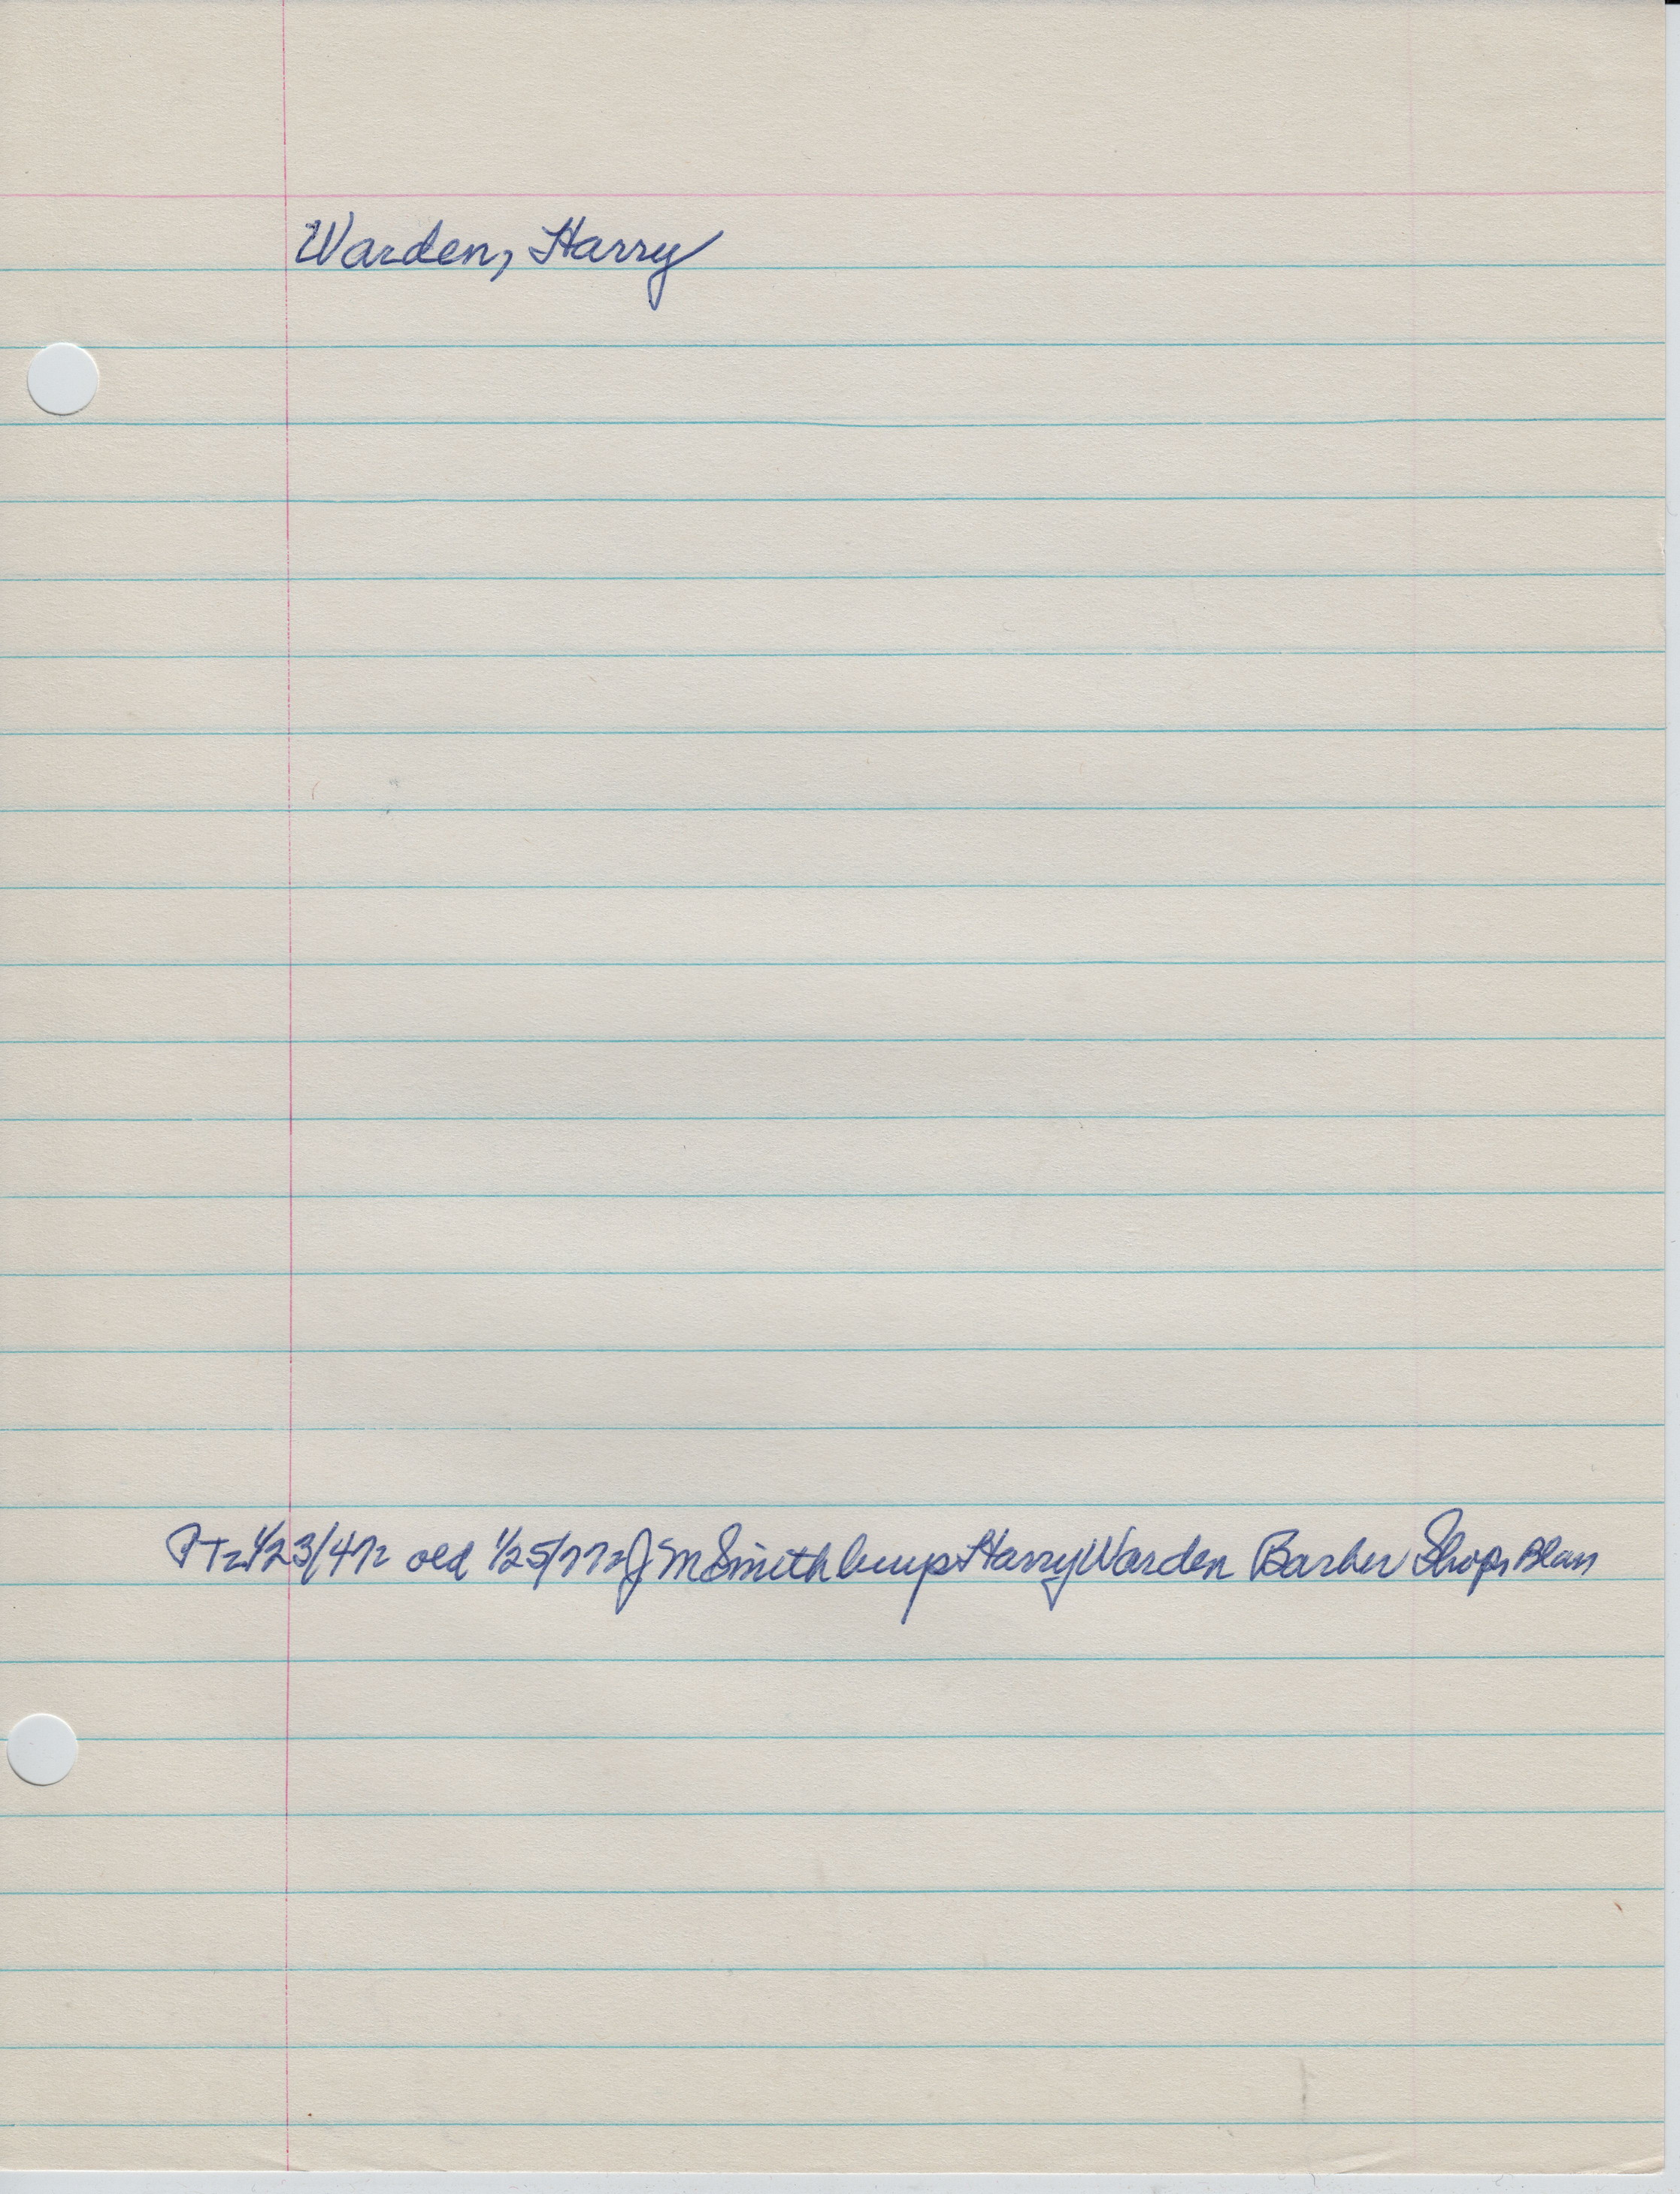 Warden, Harry
PT 1/23/47 2 old 1/25/77 2 J M Smith buys Harry Warden Barber Shop, Blan